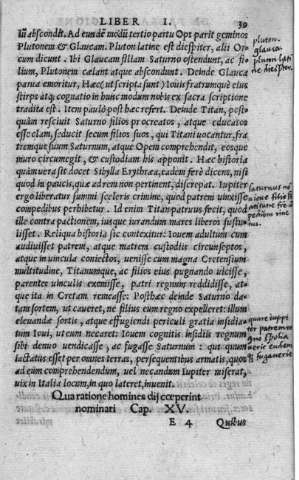 LIBER I. 39
iū abscōdit. Ad eundē modū tertio partu Opt parit geminos
Plutonem & Glaucam. Pluton latine est diespiter, alij Or
cum dicunt. Ibi Glaucam filiam Saturno ostendunt, ac fi
lium, Plutonem cælant atque abscondunt. Deinde Glauca
parua emoritur, Hæc (ut scripta sunt) Iouis fratrumque eius
stirps atque cognatio in hunc modum nobis ex sacra scriptione
tradita est. Item paulò post hæc refert. Deinde Titan, post
quàm resciuit Saturno filios procreatos, atque educatos
esse clam, seducit secum filios suos, qui Titani uocantur, fra
tremque suum Saturnum, atque Opem comprehendit, eosque
muro circumegit, & custodiam his apponit. Hæc historia
quàm uera sit docet Sibylla Erythræa, eadem ferè dicens, nisi
quòd in paucis, quæ ad rem non pertinent, discrepat. Iupiter
ergo liberatur summi sceleris crimine, quòd patrem uinxisse
compedibus perhibetur. Id enim Titan patruus fecit, quòd
ille contra pactionem, iusque iurandum mares liberos sustu
lisset. Reliqua historia sic contexitur: Iouem adultum cum
audiuisset patrem, atque matrem custodijs circumseptos,
atque in uincula coniectos, uenisse cum magna Cretensium
multitudine, Titanumque, ac filios eius pugnando uicisse,
parentes uinculis exemisse, patri regnum reddidisse, at-
que ita in Cretam remeasse: Post hæc deinde Saturno da-
tam sortem, ut caueret, ne filius eum regno expelleret: illum
eleuandæ sortis, atque effugiendi periculi gratia insidia-
tum Ioui, ut eum necaret: Iouem cognitis insidijs regnum
sibi denuo uendicasse, ac fugasse Saturnum: qui quum
iactatus esset per omnes terras, persequentibus armatis, quos
ad eum comprehendendum, uel necandum Iupiter miserat,
uix in Italia locum, in quo lateret, inuenit.
Qua ratione homines dij cœperint
nominari Cap. XV.
E 4 Quibus
pluton.
glauca.